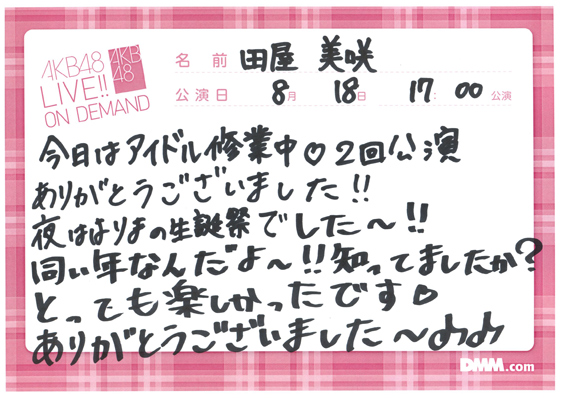 AKB48
LIVE!!
ON DEMAND
AKB
48
名前 田屋 美咲
公演日 8月 18日 17:00 公演
今日はアイドル修業中♡2回公演
ありがとうございました!!
夜ははりまの生誕祭でした〜!!
同い年なんだよ〜!!知ってましたか?
とっても楽しかったです♡
ありがとうございました〜みみ
DMM.com